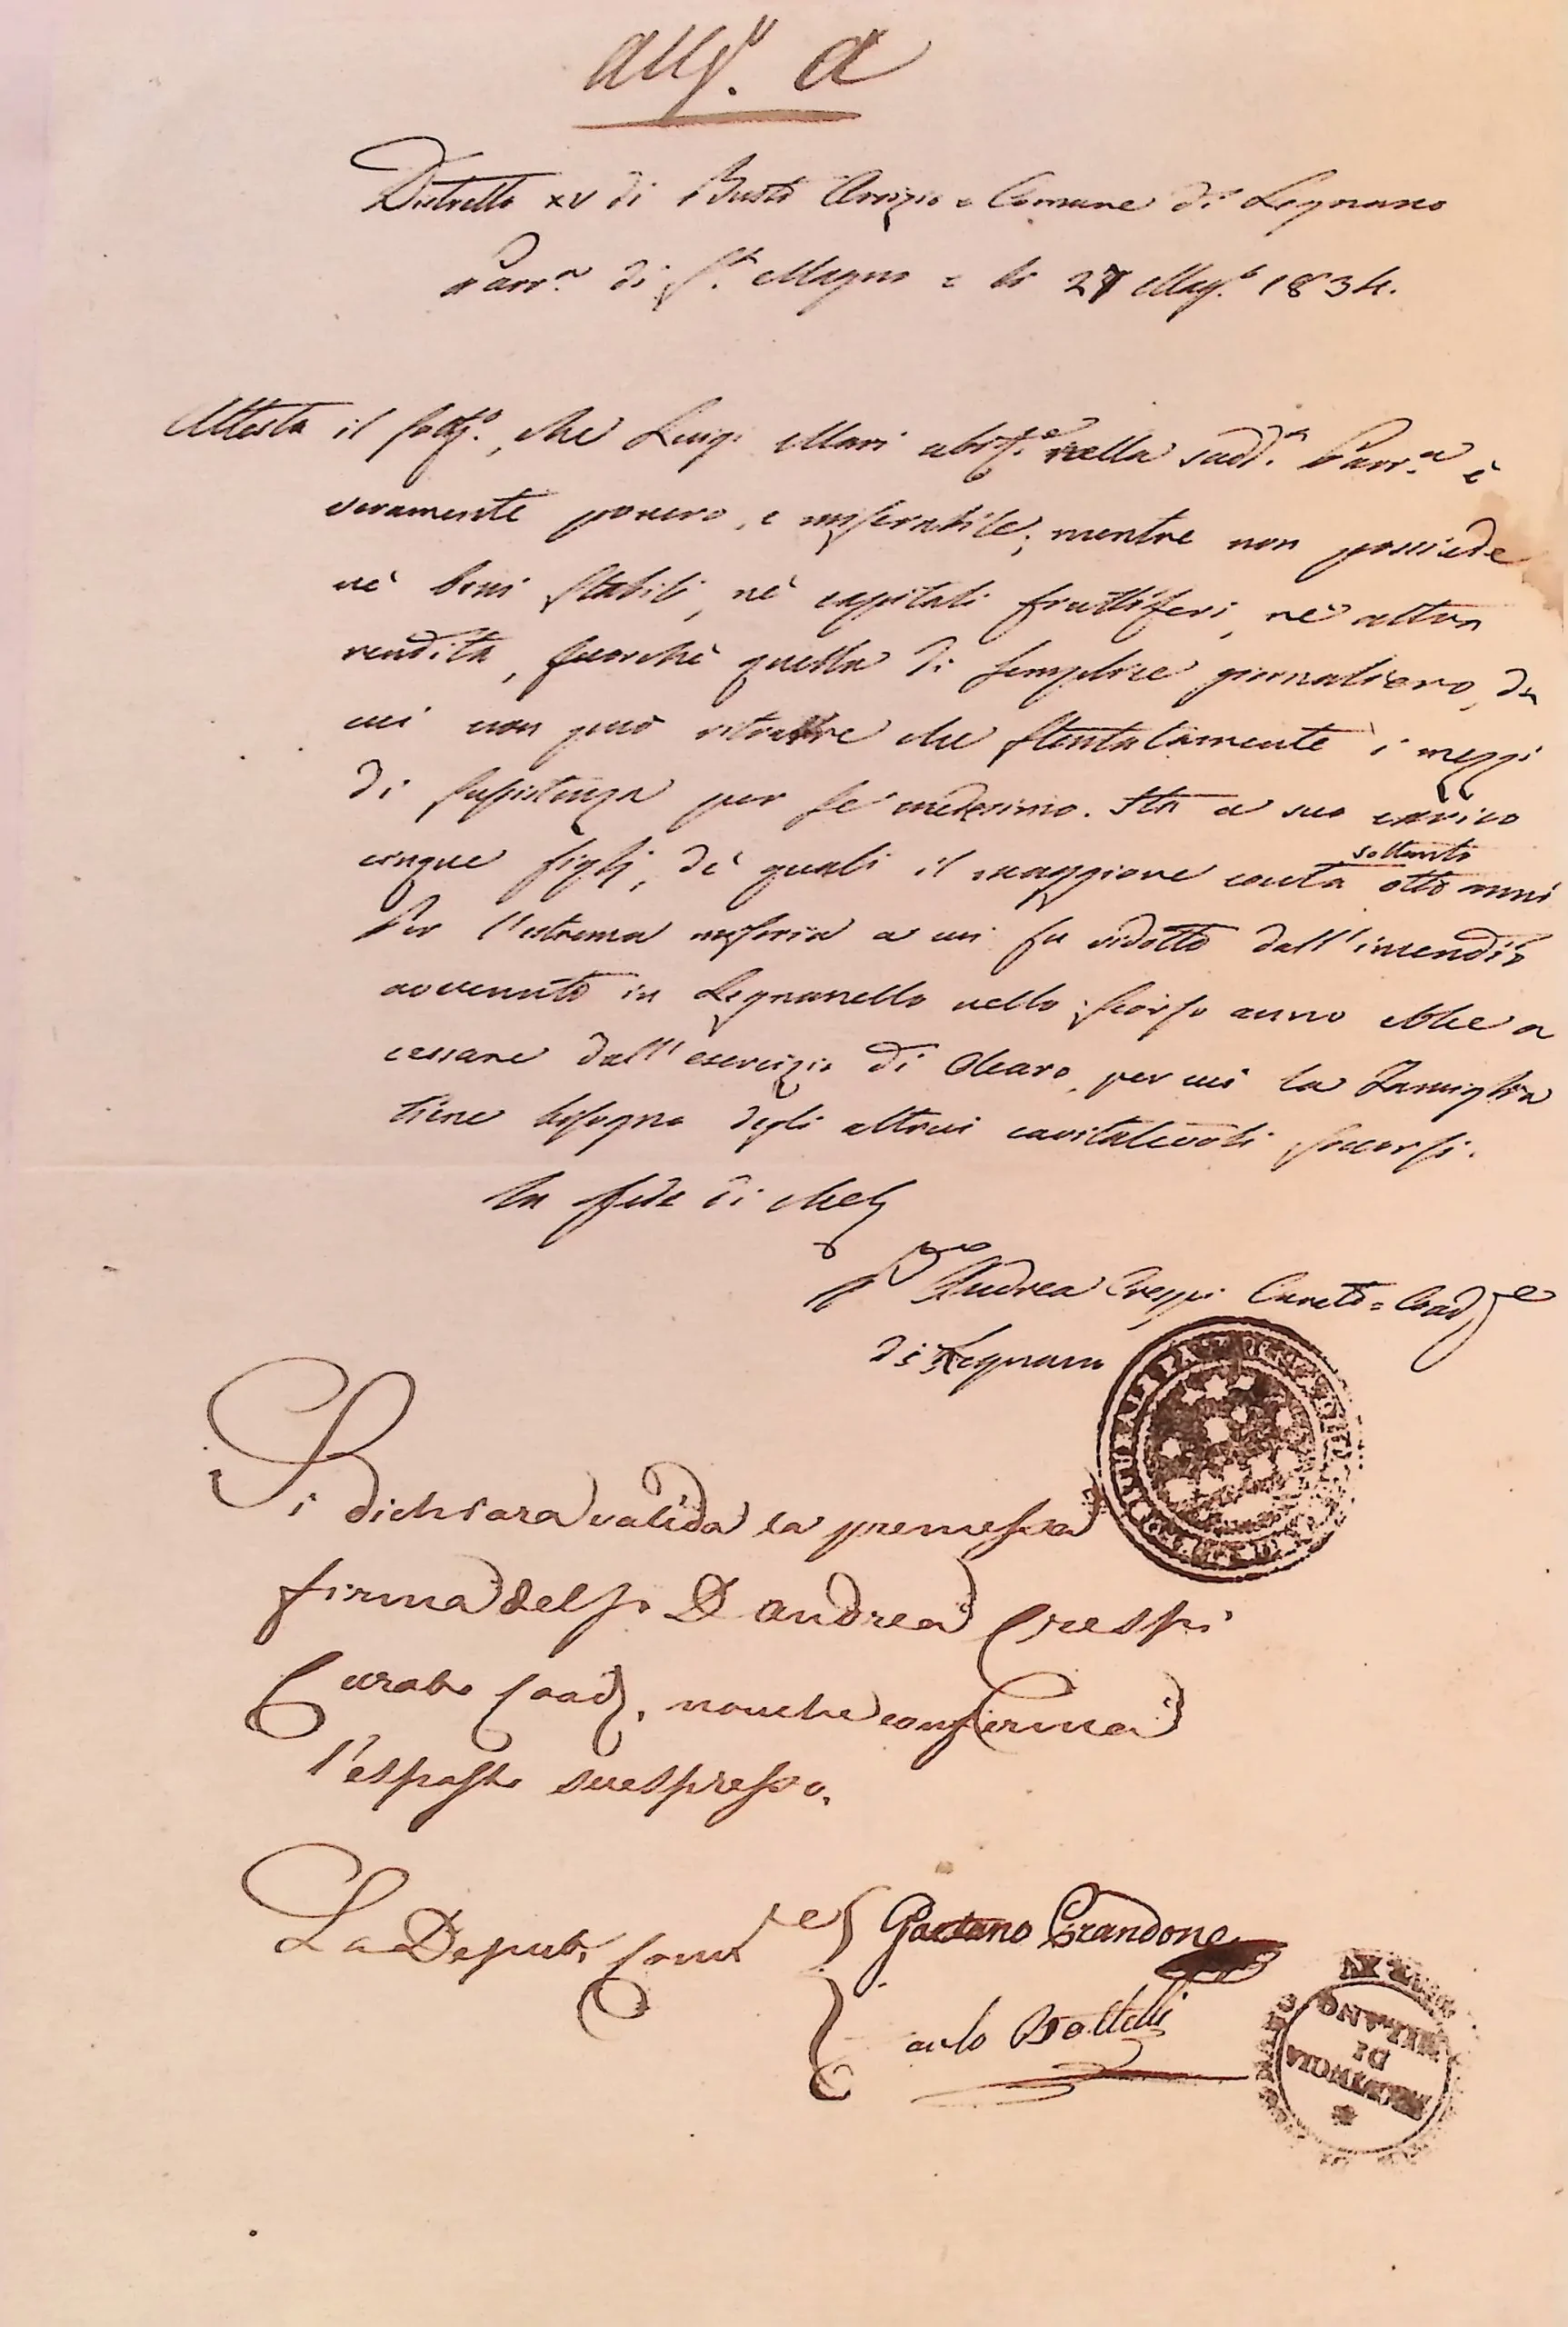 all.º a
Distretto XV di Busto Arsizio = Comune di Legnano
Parr.ª di S.ᵗ Magno = li 27 Mag.º 1834.
Attesta il sott.º, che Luigi Mari abit.ᵉ nella sudd.ª Parr.ª è
veramente povero, e miserabile; mentre non possiede
nè beni stabili, nè capitali fruttiferi, nè altra
rendita, fuorchè quella di semplice giornaliero, da
cui non può ritrarre che stentatamente i mezzi
di sussistenza per se medesimo. Ha a suo carico
cinque figlj, de' quali il maggiore conta soltanto otto anni
Per l'estrema miseria a cui fu ridotto dall'incendio
avvenuto in Legnanello nello scorso anno ebbe a
cessare dall'esercizio di Olearo, per cui la Famiglia
tiene bisogno degli altrui caritatevoli soccorsi.
In fede di che
P. Andrea Crespi Curato = Coad.ᵉ
di Legnano
Si dichiara valida la premessa
firma del S. D. Andrea Crespi
Curato Coad., nonche conferma
l'esposto suespresso.
La Deput. Com.ˡᵉ Gaetano Grandone
Carlo Bottelli
DIST. XV
MILANO
DI
PROVINCIA